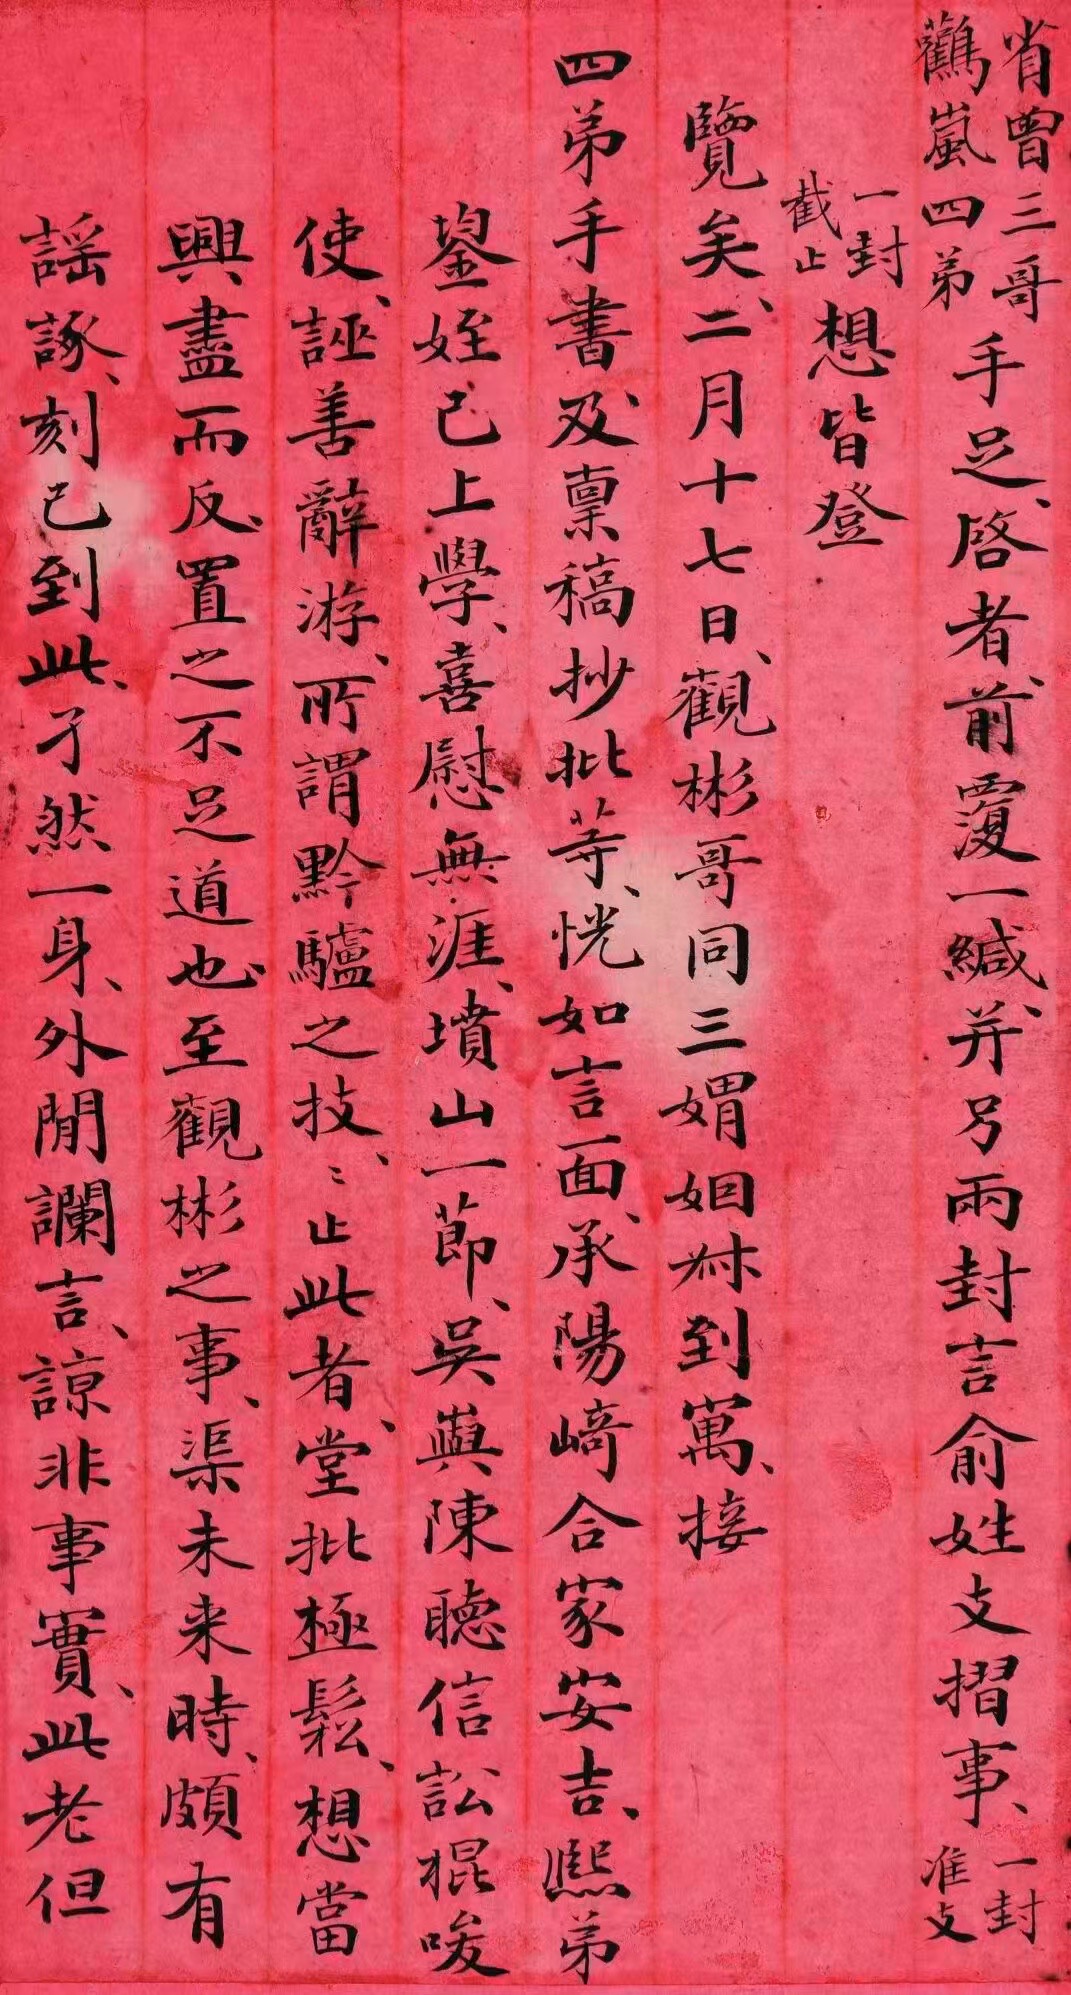 省曾三哥
鸛嵐四弟手足、啓者、前覆一緘、并另兩封言俞姓支摺事、一封
准支
一封
截止想皆登
覽矣、二月十七日、觀彬哥同三媦姻叔到寓、接
四弟手書及稟稿抄批等、恍如言面、承陽崎合家安吉、熙弟
鋆姪已上學、喜慰無涯、墳山一節、吳與陳聽信訟棍唆
使、誣善辭游、所謂黔驢之技、技止此者、堂批極鬆、想當
興盡而反、置之不足道也、至觀彬之事、渠未来時、頗有
謠諑、刻已到此、孑然一身、外間讕言、諒非事實、此老但